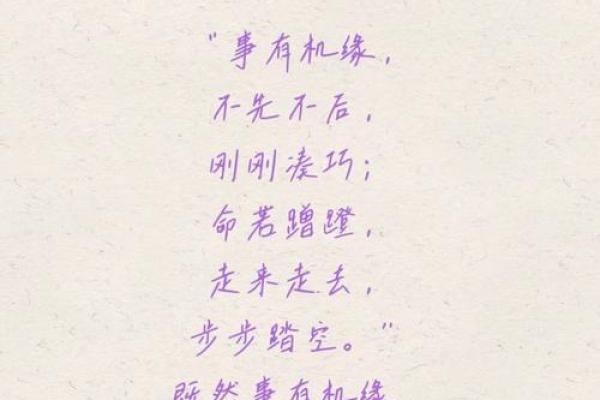 "事有机缘，
不先不后，
刚刚凑巧；
命若蹭蹬，
走来走去，
步步踏空。"
既然事有机缘